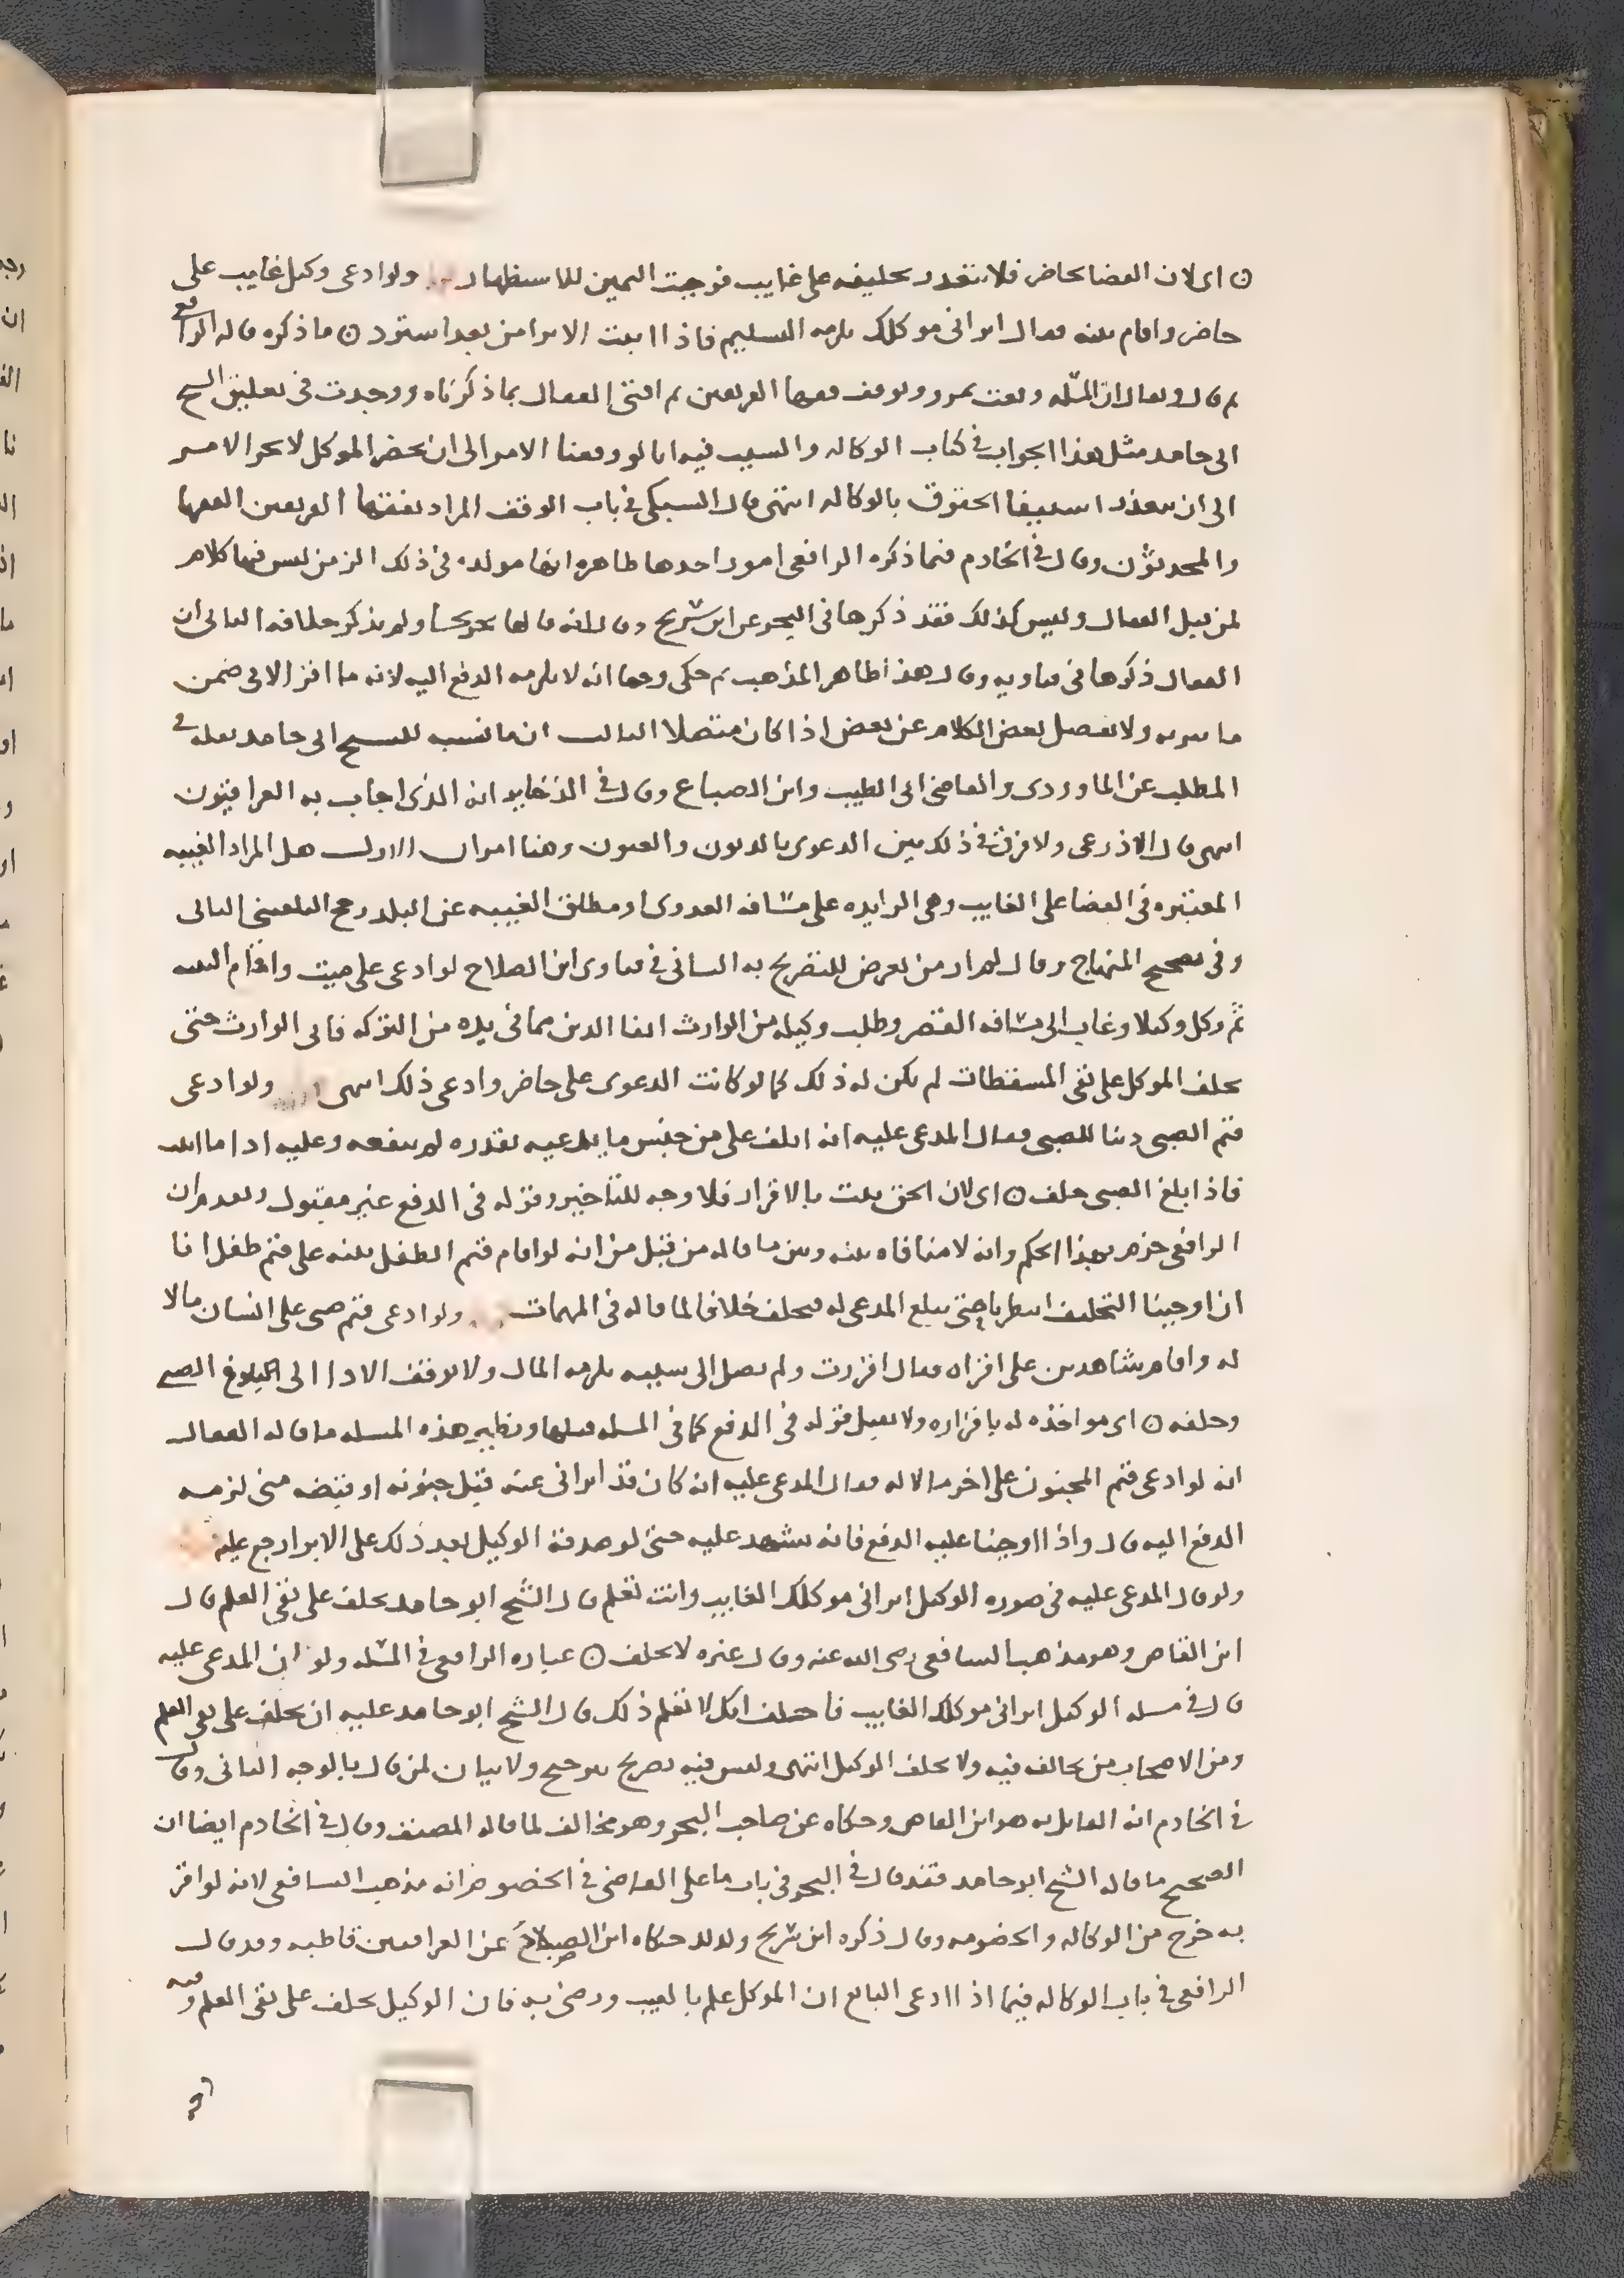 ه اى لان القضا بحاضر فلا تتقدر بحليفه على غايب فوجبت اليمين للاستظهار ولو ادعى وكيل غايب على
حاضر واقام بينه فقال ابرانى موكلك يلزمه التسليم فاذا اثبت الابرا من بعد استرد ه ما ذكره قاله الرافعى
ثم قال ويقال ان المسله وقعت بمرو وتوقف فيها الفريقين ثم افتى القفال بما ذكرناه ووجدت فى تعليق الشيخ
ابى حامد مثل هذا الجواب فى كتاب الوكاله والسبب فيه انا لو وقفنا الامر الى ان يحضر الموكل لانجر الامر
الى ان يتعذر استيفا الحقوق بالوكاله انتهى قال السبكى فى باب الوقف المراد بفقها الفريقين الفقها
والمحدثون وقال فى الخادم فيما ذكره الرافعى امور احدها ظاهره انها مولده فى ذلك الزمن ليس فيها كلام
لمن قبل القفال وليس كذلك فقد ذكرها فى البحر عن ابن سريج وقال انه قالها تخريجا ولم يذكر خلافه الثانى ان
القفال ذكرها فى فتاويه وقال هذا ظاهر المذهب ثم حكى وجها انه لا يلزمه الدفع اليه لانه ما اقر الا فى ضمن
ما يبريه ولا يفصل بعض الكلام عن بعض اذا كان متصلا الثالث ان ما نسبه للشيخ ابى حامد نقله فى
المطلب عن الماوردى والقاضى ابى الطيب وابن الصباغ وقال فى الذخاير انه الذى اجاب به العراقيون
انتهى قال الاذرعى ولا فرق فى ذلك بين الدعوى بالديون والعيون وهنا امران الاول هل المراد الغيبه
المعتبره فى القضا على الغايب وهى الزايده على مسافه العدوى او مطلق الغيبه عن البلد رجح البلقينى الثانى
وفى تصحيح المنهاج وقال لم ار من تعرض للتصريح به الثانى فى فتاوى ابن الصلاح لو ادعى على ميت واقام البينه
ثم وكل وكيلا وغاب الى مسافه القصر وطلب وكيله من الوارث ايفا الدين مما فى يده من التركه فابى الوارث حتى
يحلف الموكل على نفى المسقطات لم يكن له ذلك كما لو كانت الدعوى على حاضر وادعى ذلك انتهى ولو ادعى
قيم الصبى دينا للصبى فقال المدعى عليه انه اتلف على من جنس ما يدعيه بقدره لم ينفعه وعليه ادا ما اثبته
فاذا بلغ الصبى حلف ه اى لان الحق يثبت بالاقرار فلا وجه للتاخير وقوله فى الدفع غير مقبول وتقدم ان
الرافعى جزم بهذا الحكم وانه لا منافاه بينه وبين ما قاله من قبل من انه لو اقام قيم الطفل بينه على قيم طفل انا
ان اوجبنا التحليف انتظرنا حتى يبلغ المدعى له فيحلف خلافا لما قاله فى المهمات ولو ادعى قيم صبى على انسان مالا
له واقام شاهدين على اقراره فقال اقررت ولم يصل الى سببه يلزمه المال ولا يوقف الادا الى البلوغ الصبى
وحلفه ه اى مواخذه له باقراره ولا يقبل قوله فى الدفع كما فى المسله قبلها ونظير هذه المسله ما قاله القفال
انه لو ادعى قيم المجنون على اخر مالا له فقال المدعى عليه انه كان قد ابرانى عنه قبل جنونه او قبضه منى لزمه
الدفع اليه قال واذا اوجبنا عليه الدفع فانه يشهد عليه حتى لو صدقه الوكيل بعد ذلك على الابرا رجع عليه
ولو قال المدعى عليه فى صوره الوكيل ابرانى موكلك الغايب وانت تعلم قال الشيخ ابو حامد يحلف على نفى العلم قال
ابن القاص وهو مذهب الشافعى رضى الله عنه وقال غيره لا يحلف ه عباره الرافعى فى المسله ولو ان المدعى عليه
قال فى مسله الوكيل ابرانى موكلك الغايب فاحلف انك لا تعلم ذلك قال الشيخ ابو حامد عليه ان يحلف على نفى العلم
ومن الاصحاب من يخالف فيه ولا يحلف الوكيل انتهى وليس فيه تصريح بترجيح ولا بيان لمن قال بالوجه الثانى وقال
فى الخادم انه القايل به هو ابن القاص وحكاه عن صاحب البحر وهو مخالف لما قاله المصنف وقال فى الخادم ايضا ان
الصحيح ما قاله الشيخ ابو حامد فقد قال فى البحر فى باب ما على القاضى فى الخصوم انه مذهب الشافعى لانه لو اقر
به خرج من الوكاله والخصومه وقال ذكره ابن سريج وكذلك حكاه ابن الصلاح عن العراقيين قاطبه وقد قال
الرافعى فى باب الوكاله فيما اذا ادعى البايع ان الموكل علم بالعيب ورضى به فان الوكيل يحلف على نفى العلم وفيه